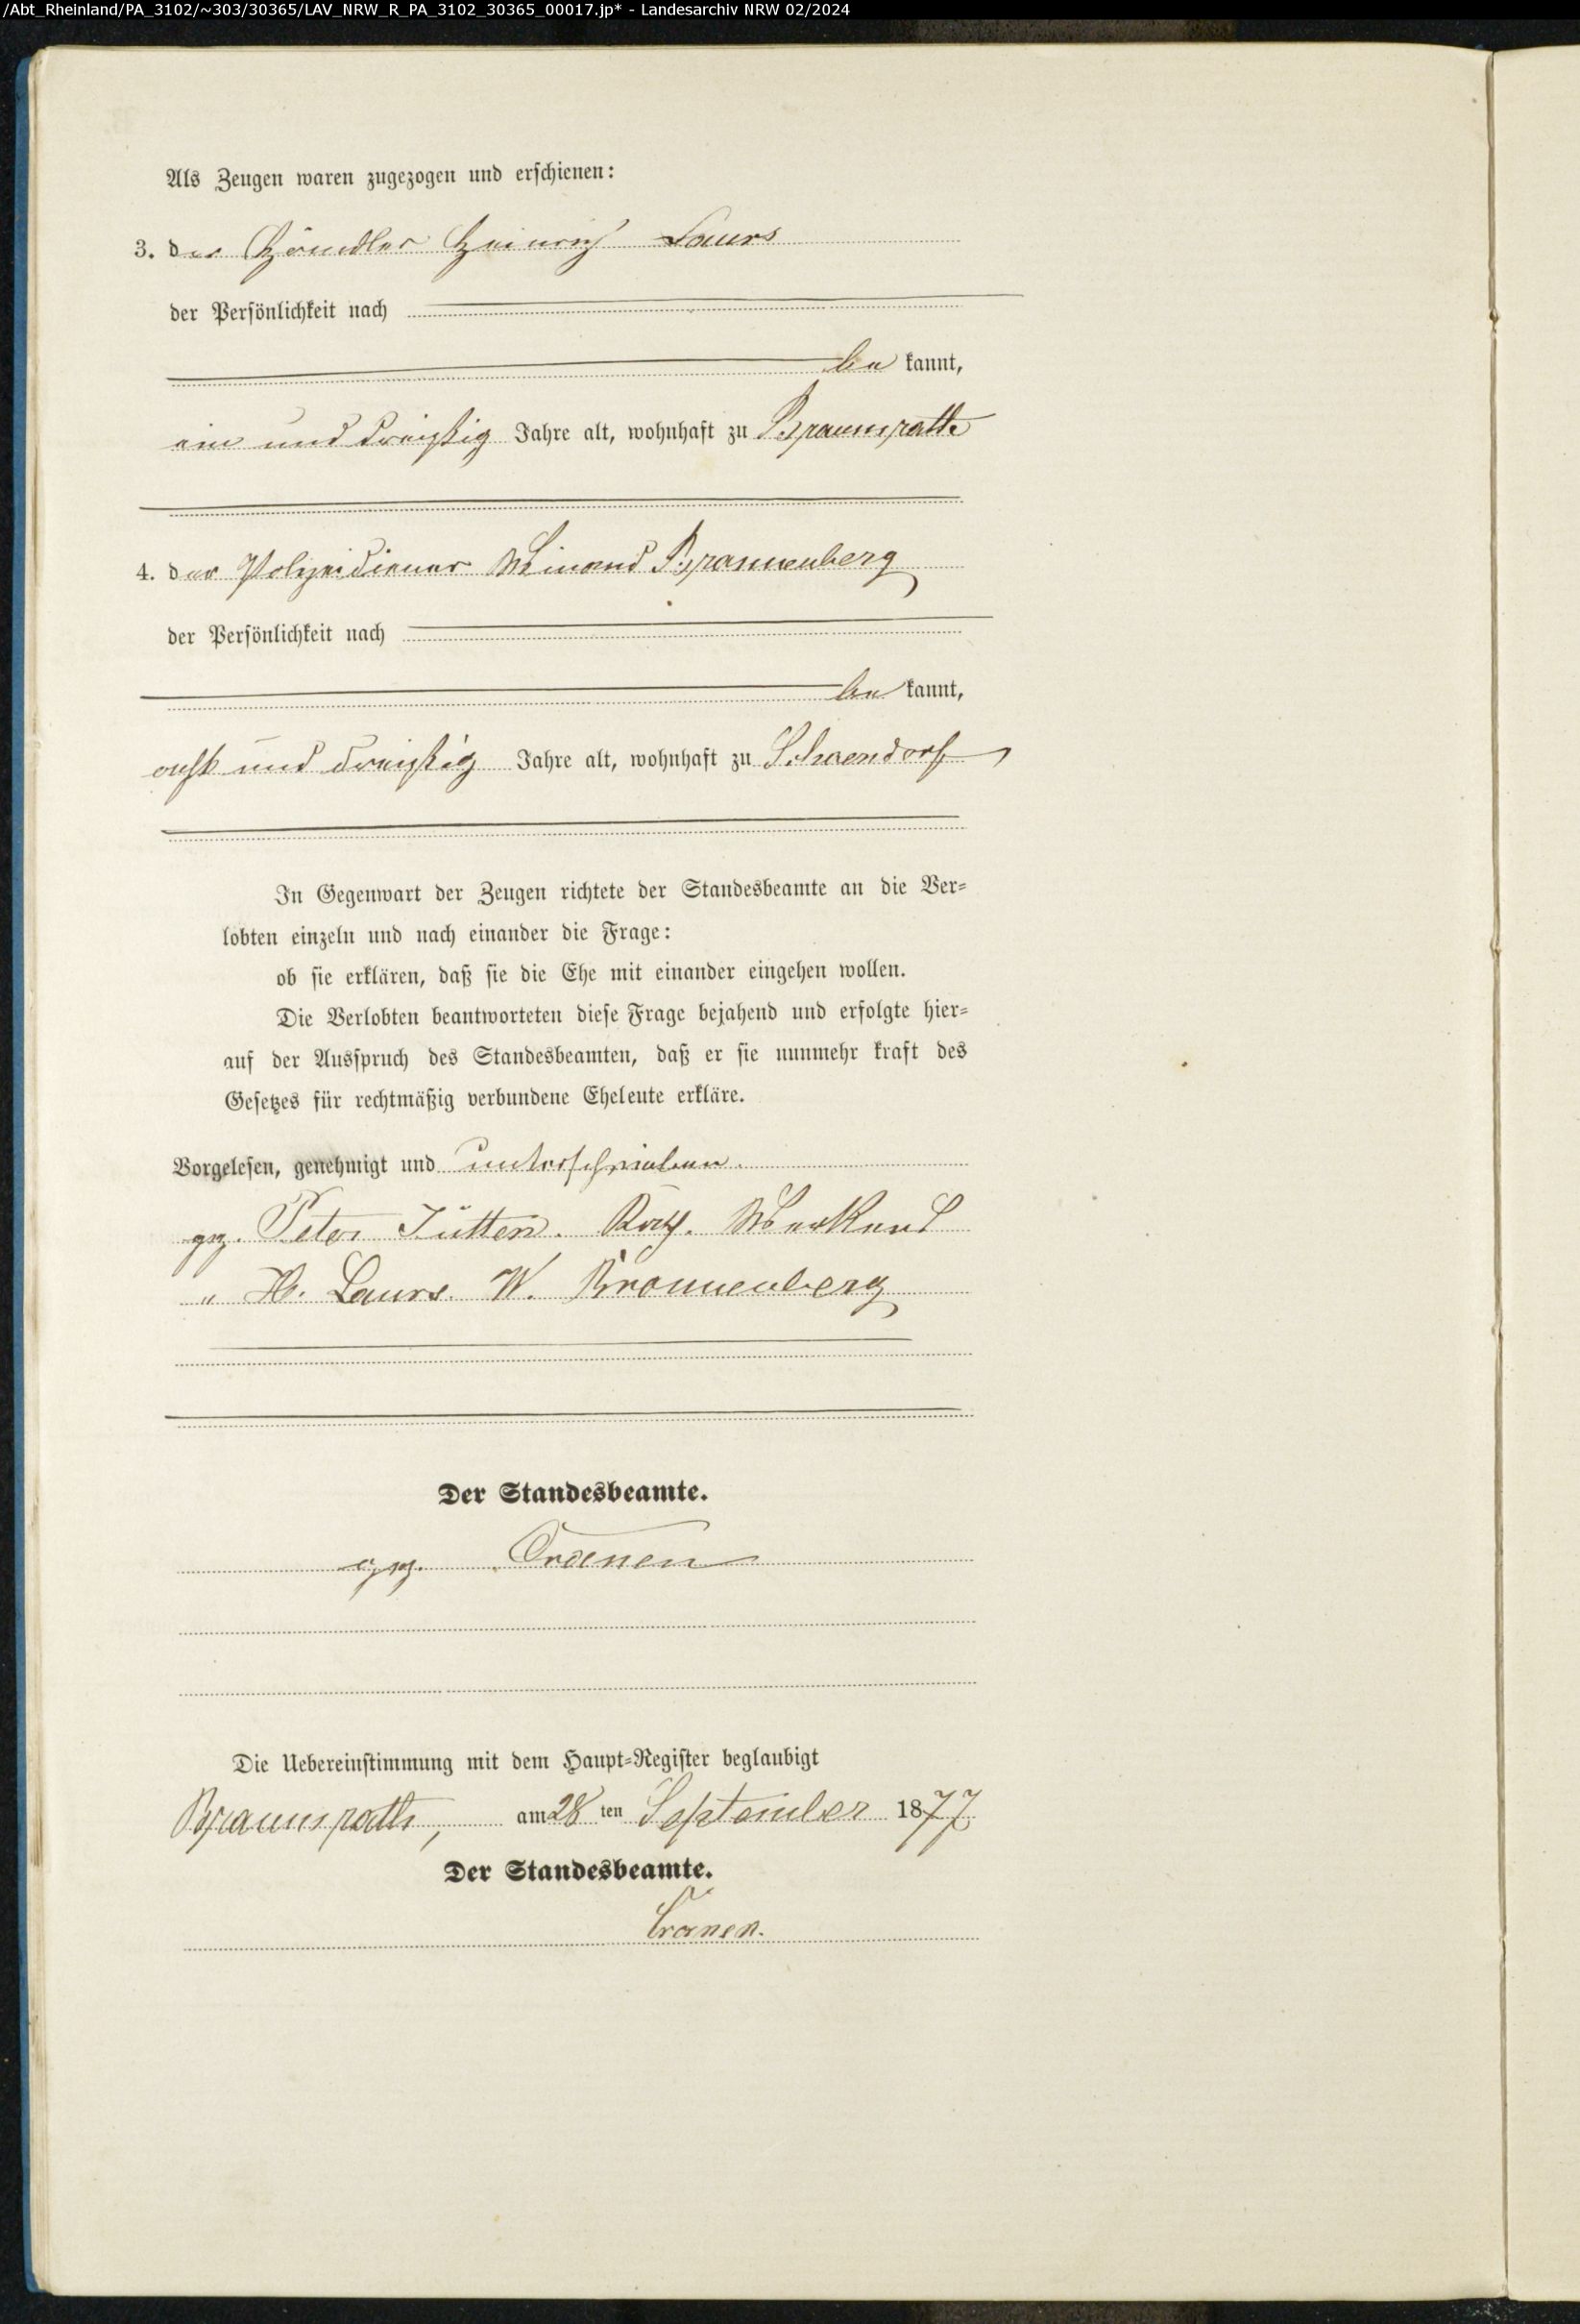 /Abt_Rheinland/PA_3102/~303/30365/LAV_NRW_R_PA_3102_30365_00017.jp* - Landesarchiv NRW 02/2024
Als Zeugen waren zugezogen und erschienen:
3. der Händler Heinrich Laurs
der Persönlichkeit nach
be kannt,
ein und dreißig Jahre alt, wohnhaft zu Braunsrath
4. der Polizeidiener Winand Brannenberg
der Persönlichkeit nach
be kannt,
acht und dreißig Jahre alt, wohnhaft zu
In Gegenwart der Zeugen richtete der Standesbeamte an die Ver-
lobten einzeln und nach einander die Frage:
ob sie erklären, daß sie die Ehe mit einander eingehen wollen.
Die Verlobten beantworteten diese Frage bejahend und erfolgte hier-
auf der Ausspruch des Standesbeamten, daß er sie nunmehr kraft des
Gesetzes für rechtmäßig verbundene Eheleute erkläre.
Vorgelesen, genehmigt und unterschrieben
gez. Peter Jütten.
" H. Laurs. W. Brannenberg
Der Standesbeamte.
gez. Cranen
Die Uebereinstimmung mit dem Haupt-Register beglaubigt
Braunsrath, am 28 ten September 1877
Der Standesbeamte.
Cranen.